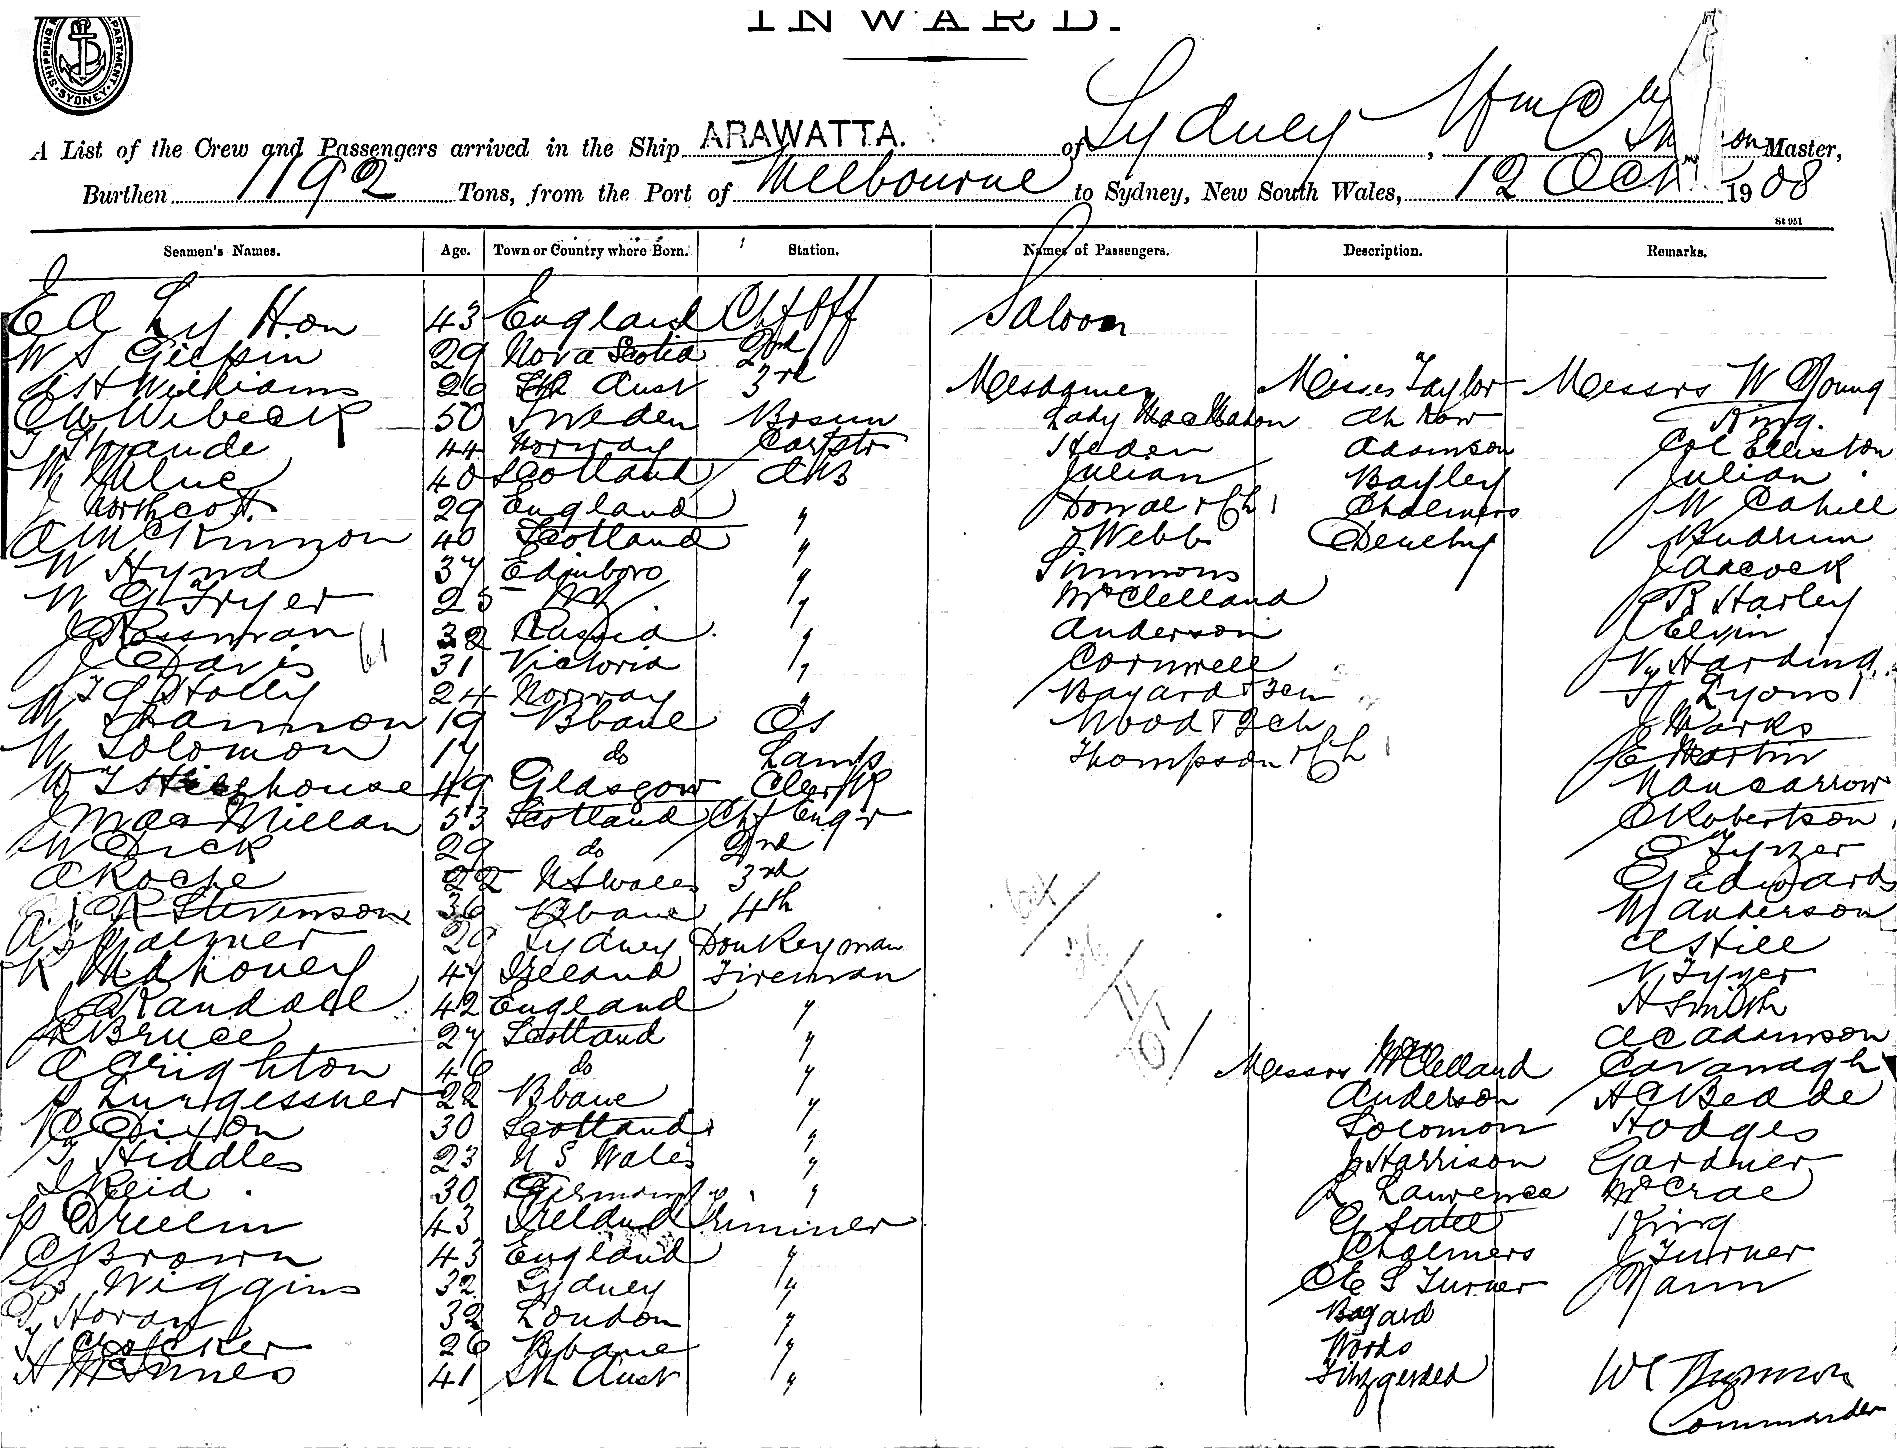 INWARD.
SHIPPING DEPARTMENT SYDNEY
A List of the Crew and Passengers arrived in the Ship ARAWATTA. of Sydney, Master,
Burthen 1192 Tons, from the Port of Melbourne to Sydney, New South Wales, 12 Oct 1908
St 951
Seamen's Names. Age. Town or Country where Born. Station. Names of Passengers. Description. Remarks.
E A Lytton 43 England Chf Off Saloon
W S Gilpin 29 Nova Scotia 2nd
A H Williams 26 Sth Aust 3rd Mesdames Misses Taylor Messrs W Young
C W Wibeck 50 Sweden Bosun Lady MacMahon Ah Kow King.
44 Norway Carptr Hedon Adamson Col Elliston
M Milne 40 Scotland AMB Julian Bayley Julian
J Northcott 29 England " Howae & Ch 1 Chalmers W Cahill
A McKinnon 40 Scotland " J Webb Denehy Budrum
W Hynd 37 Edinboro " Simmons J Adcock
W G Fryer 25 " McClelland R Harley
J Rossman 32 Russia " Anderson J Elvin
J Davis 31 Victoria " Cornwell Harding
Holly 24 Norway " Bayard & 3 ch Lyons
W Shannon 19 Bbane OS Wood & 2 ch J Marks
W Solomon 17 do Lamps Thompson & Ch 1 E Martin
W J Hillhouse 49 Glasgow Clerk Nancarrow
J MacMillan 53 Scotland Chf Engr C Robertson
W Dick 29 do 2nd Tyzer
A Roche 22 N S Wales 3rd Edwards
R Stevenson 36 Bbane 4th W Anderson
Palmer 26 Sydney Donkeyman A Hill
K Mahoney 47 Ireland Fireman V Tyzer
J Randall 42 England " H Smith
R Bruce 27 Scotland " A C Adamson
A Crighton 46 do " Messrs McClelland Cavanagh
P Lungessner 22 Bbane " Anderson H C Beade
Dixon 30 Scotland " Solomon Hodges
T Hiddles 23 N S Wales " J Harrison Gardner
J Reid 30 Germany " L Lawrence McCrae
P 43 Ireland Trimmer G King
C Brown 43 England " Chalmers J Turner
W Wiggins 32 Sydney " C E S Turner Mann
P Horan 32 London " Bayard
T Crocker 26 Bbane " Woods
H McInnes 41 Sth Aust " Fitzgerald
W C Thomson
Commander